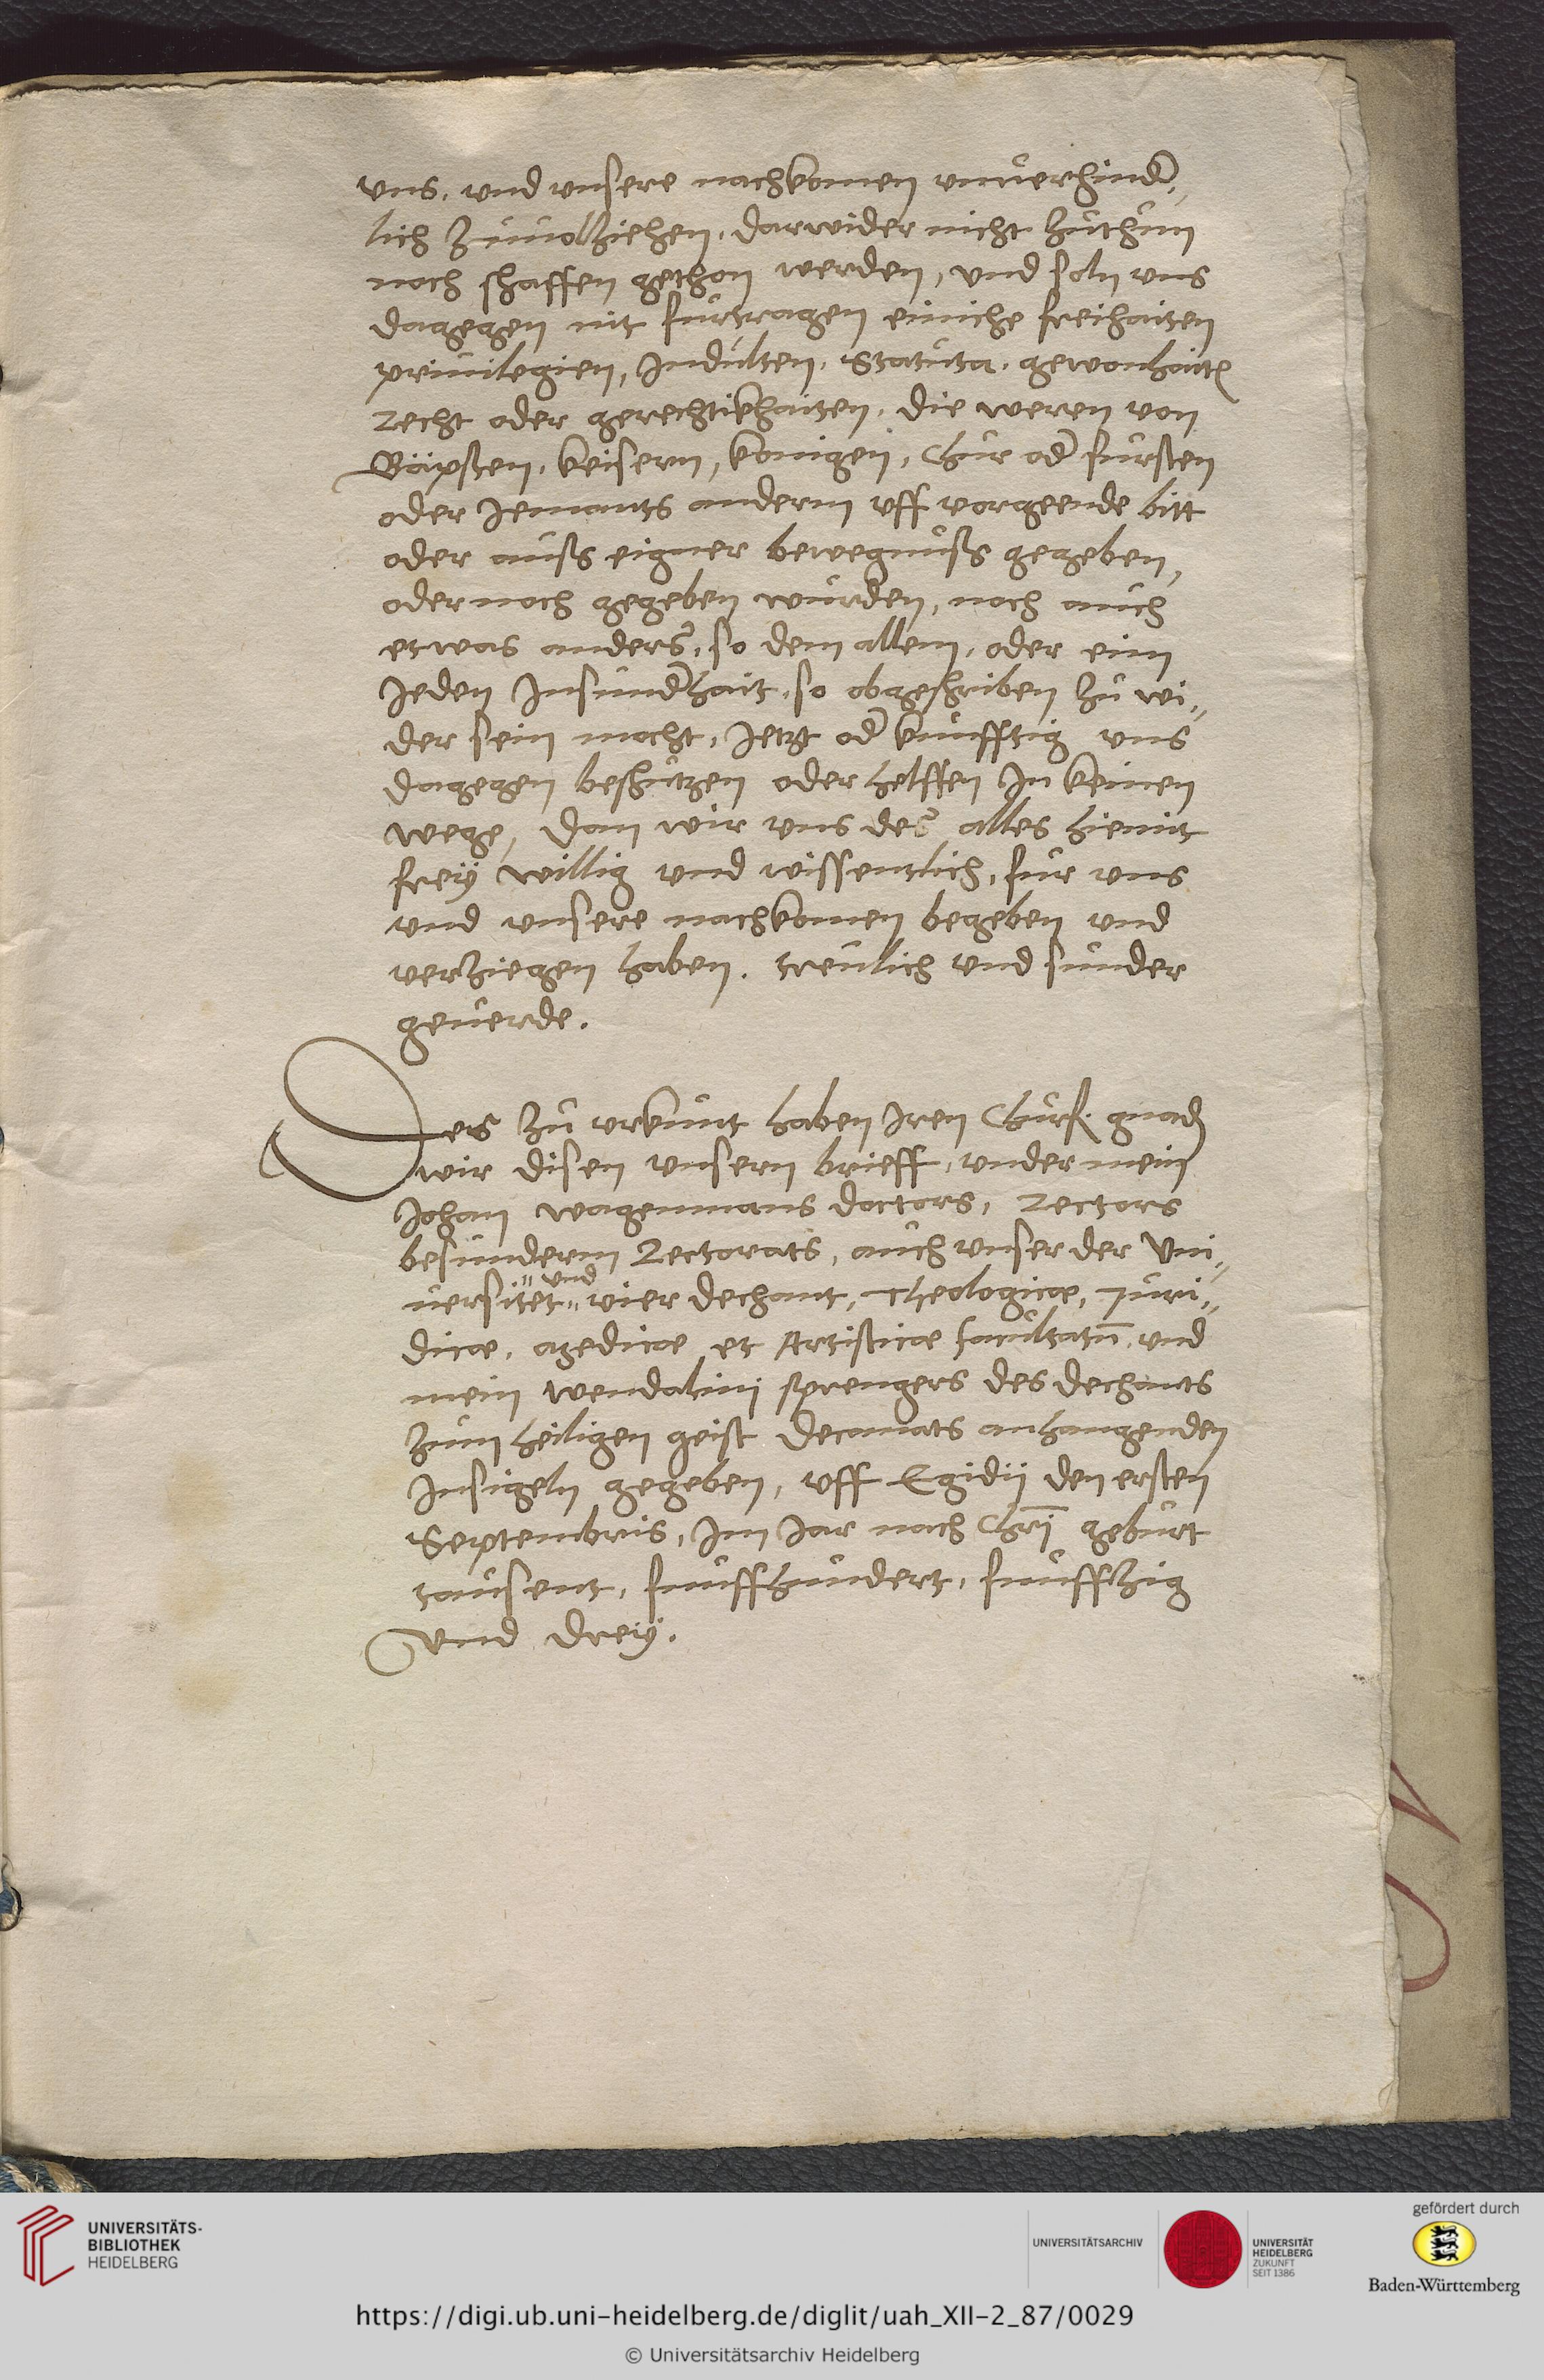 vns, vnd vnsere nachkomen vnuerhind
lich zuuolziehen, darwider nicht zuthun
noch schaffen gethon werden, vnd soln vns
dagegen nit furtragen einiche freihaiten
priuilegien, Indulten, Statuta, gewonhaiten
Recht oder gerechtikhaiten, die weren von
Bäpsten, keisern, konigen, Chur od fursten
oder Jemants anderm vff vorgeende bitt
oder auss eigner bewegnuss gegeben,
oder noch gegeben wurden, noch auch
etwas anders, so dem allem, oder eim
Jeden Insundhait, so obgeschriben zu wi„
der sein mocht, Jetzt od kunfftig vns
dagegen beschutzen oder helffen In keinen
wege, dan wir vns des alles hiemit
freÿ willig vnd wissentlich, fur vns
vnd vnsere nachkomen begeben vnd
verziegen haben. treulich vnd sunder
geuerde.
Des zu vrkunt haben Iren Churf. gnad
wir disen vnsern brieff, vnder mein
Johan wagenmans doctors, Rectors
besunderm Rectorats, auch vnser der Vni„
uersitet „vnd„ vier dechant, Theologicae, Juri„
dicae, Medicae et Artisticae facultatū, vnd
mein wendalini sprengers des dechants
zum heiligen geist Decanats anhangenden
Insigeln gegeben, vff Egidij den ersten
Septembris, Im Jar nach Chri̅ geburt
tausent, funffhundert, funffzig
vnd dreÿ.
UNIVERSITÄTS-
BIBLIOTHEK
HEIDELBERG
UNIVERSITÄTSARCHIV
UNIVERSITÄT
HEIDELBERG
ZUKUNFT
SEIT 1386
gefördert durch
Baden-Württemberg
https://digi.ub.uni-heidelberg.de/diglit/uah_XII-2_87/0029
© Universitätsarchiv Heidelberg